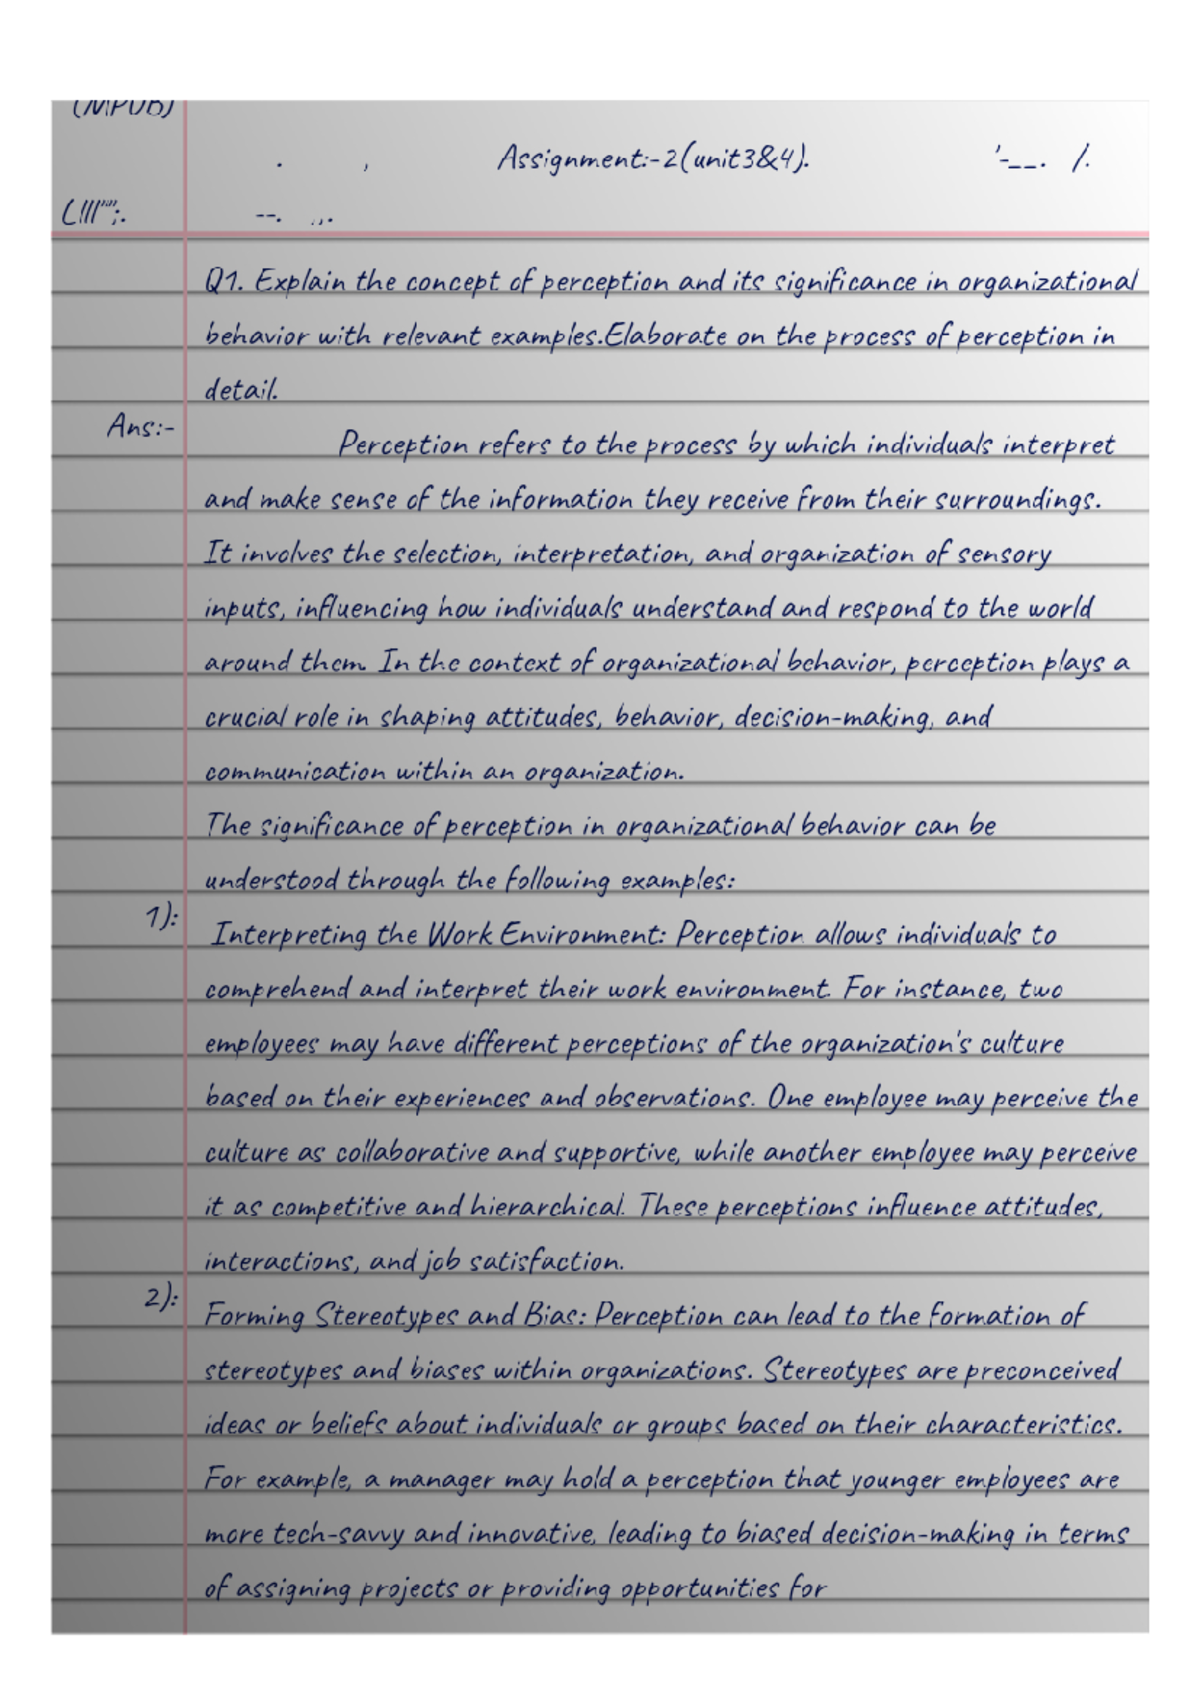 (MPOB)
Assignment:-2(unit3&4).
Q1. Explain the concept of perception and its significance in organizational
behavior with relevant examples.Elaborate on the process of perception in
detail.
Ans:-
Perception refers to the process by which individuals interpret
and make sense of the information they receive from their surroundings.
It involves the selection, interpretation, and organization of sensory
inputs, influencing how individuals understand and respond to the world
around them. In the context of organizational behavior, perception plays a
crucial role in shaping attitudes, behavior, decision-making, and
communication within an organization.
The significance of perception in organizational behavior can be
understood through the following examples:
1):
Interpreting the Work Environment: Perception allows individuals to
comprehend and interpret their work environment. For instance, two
employees may have different perceptions of the organization's culture
based on their experiences and observations. One employee may perceive the
culture as collaborative and supportive, while another employee may perceive
it as competitive and hierarchical. These perceptions influence attitudes,
interactions, and job satisfaction.
2):
Forming Stereotypes and Bias: Perception can lead to the formation of
stereotypes and biases within organizations. Stereotypes are preconceived
ideas or beliefs about individuals or groups based on their characteristics.
For example, a manager may hold a perception that younger employees are
more tech-savvy and innovative, leading to biased decision-making in terms
of assigning projects or providing opportunities for